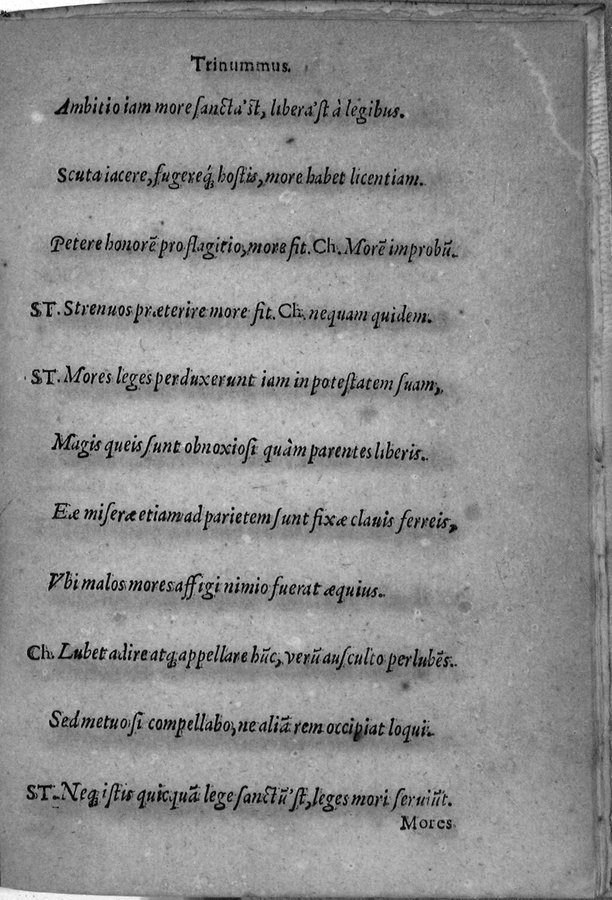 Trinummus.
Ambitio iam more ſancta'ſt, libera'ſt à legibus.
Scuta iacere, fugereq́; hoſtis, more habet licentiam.
Petere honorē pro flagitio, more fit. Ch. Morē improbū.
ST. Strenuos præterire more fit. Ch. nequam quidem.
ST. Mores leges perduxerunt iam in poteſtatem ſuam,
Magis queis ſunt obnoxioſi quàm parentes liberis.
Eæ miſeræ etiam ad parietem ſunt fixæ clauis ferreis,
Vbi malos mores affigi nimio fuerat æquius.
Ch. Lubet adire atq; appellare hūc, verū auſculto perlubēs.
Sed metuo ſi compellabo, ne aliā rem occipiat loqui.
ST. Neq; iſtis quicquā lege ſanctū'ſt, leges mori ſeruiūt.
Mores